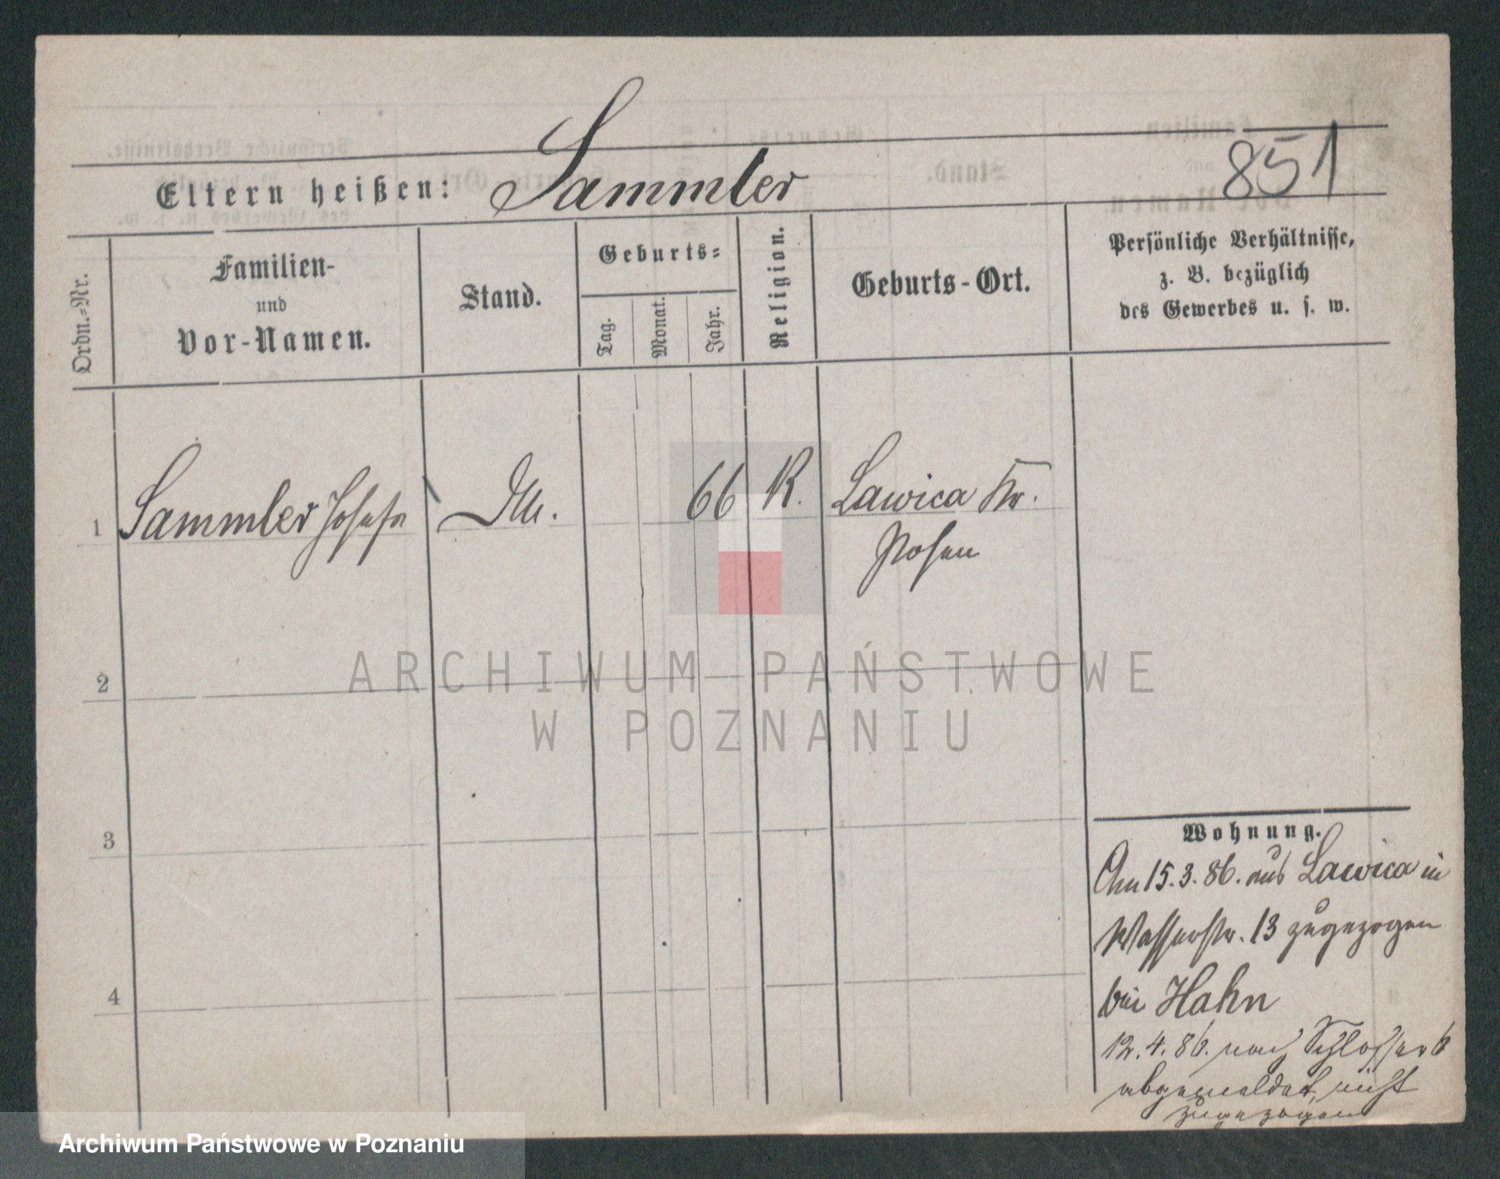 851
Eltern heißen: Sammler
Ordn.-Nr.
Familien-
und
Vor-Namen.
Stand.
Geburts-
Tag.
Monat.
Jahr.
Religion.
Geburts-Ort.
Persönliche Verhältnisse,
z. B. bezüglich
des Gewerbes u. s. w.
1 Sammler Josefa 66 K. Lawica Kr.
Posen
2
3
4
Wohnung.
Am 15.3.86. aus Lawica in
Wasserstr. 13 zugezogen
bei Hahn
12.4.86. nach Schlosser 6
abgemeldet, nicht
zugezogen
ARCHIWUM PAŃSTWOWE
W POZNANIU
Archiwum Państwowe w Poznaniu